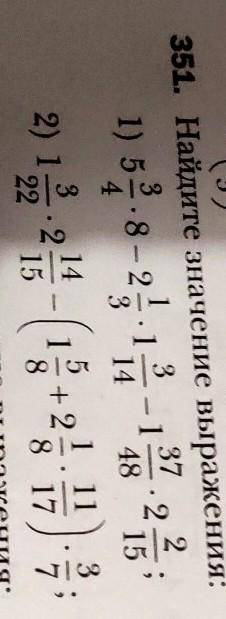 351. Найдите значение выражения:
1) 5 3/4 · 8 − 2 1/3 · 1 3/14 − 1 37/48 · 2 2/15;
2) 1 3/22 · 2 14/15 − (1 5/8 + 2 1/8 · 11/17) · 3/7;